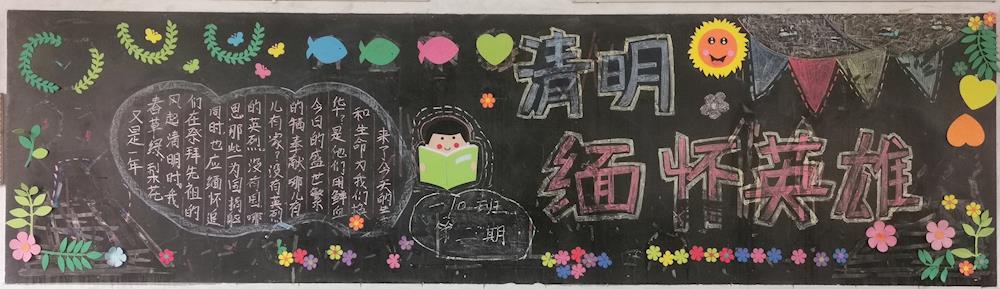 清明
缅怀英雄
又是一年
春草绿,梨花
风起清明时,我
们在祭拜先祖的
同时也应缅怀追
思那些为国捐躯
的英烈。没有国哪
儿有家?没有英烈
的牺牲奉献,哪儿有
今日的盛世繁
华?是他们用鲜血
和生命为我们换
来了今天的生
一〇二班
第二期